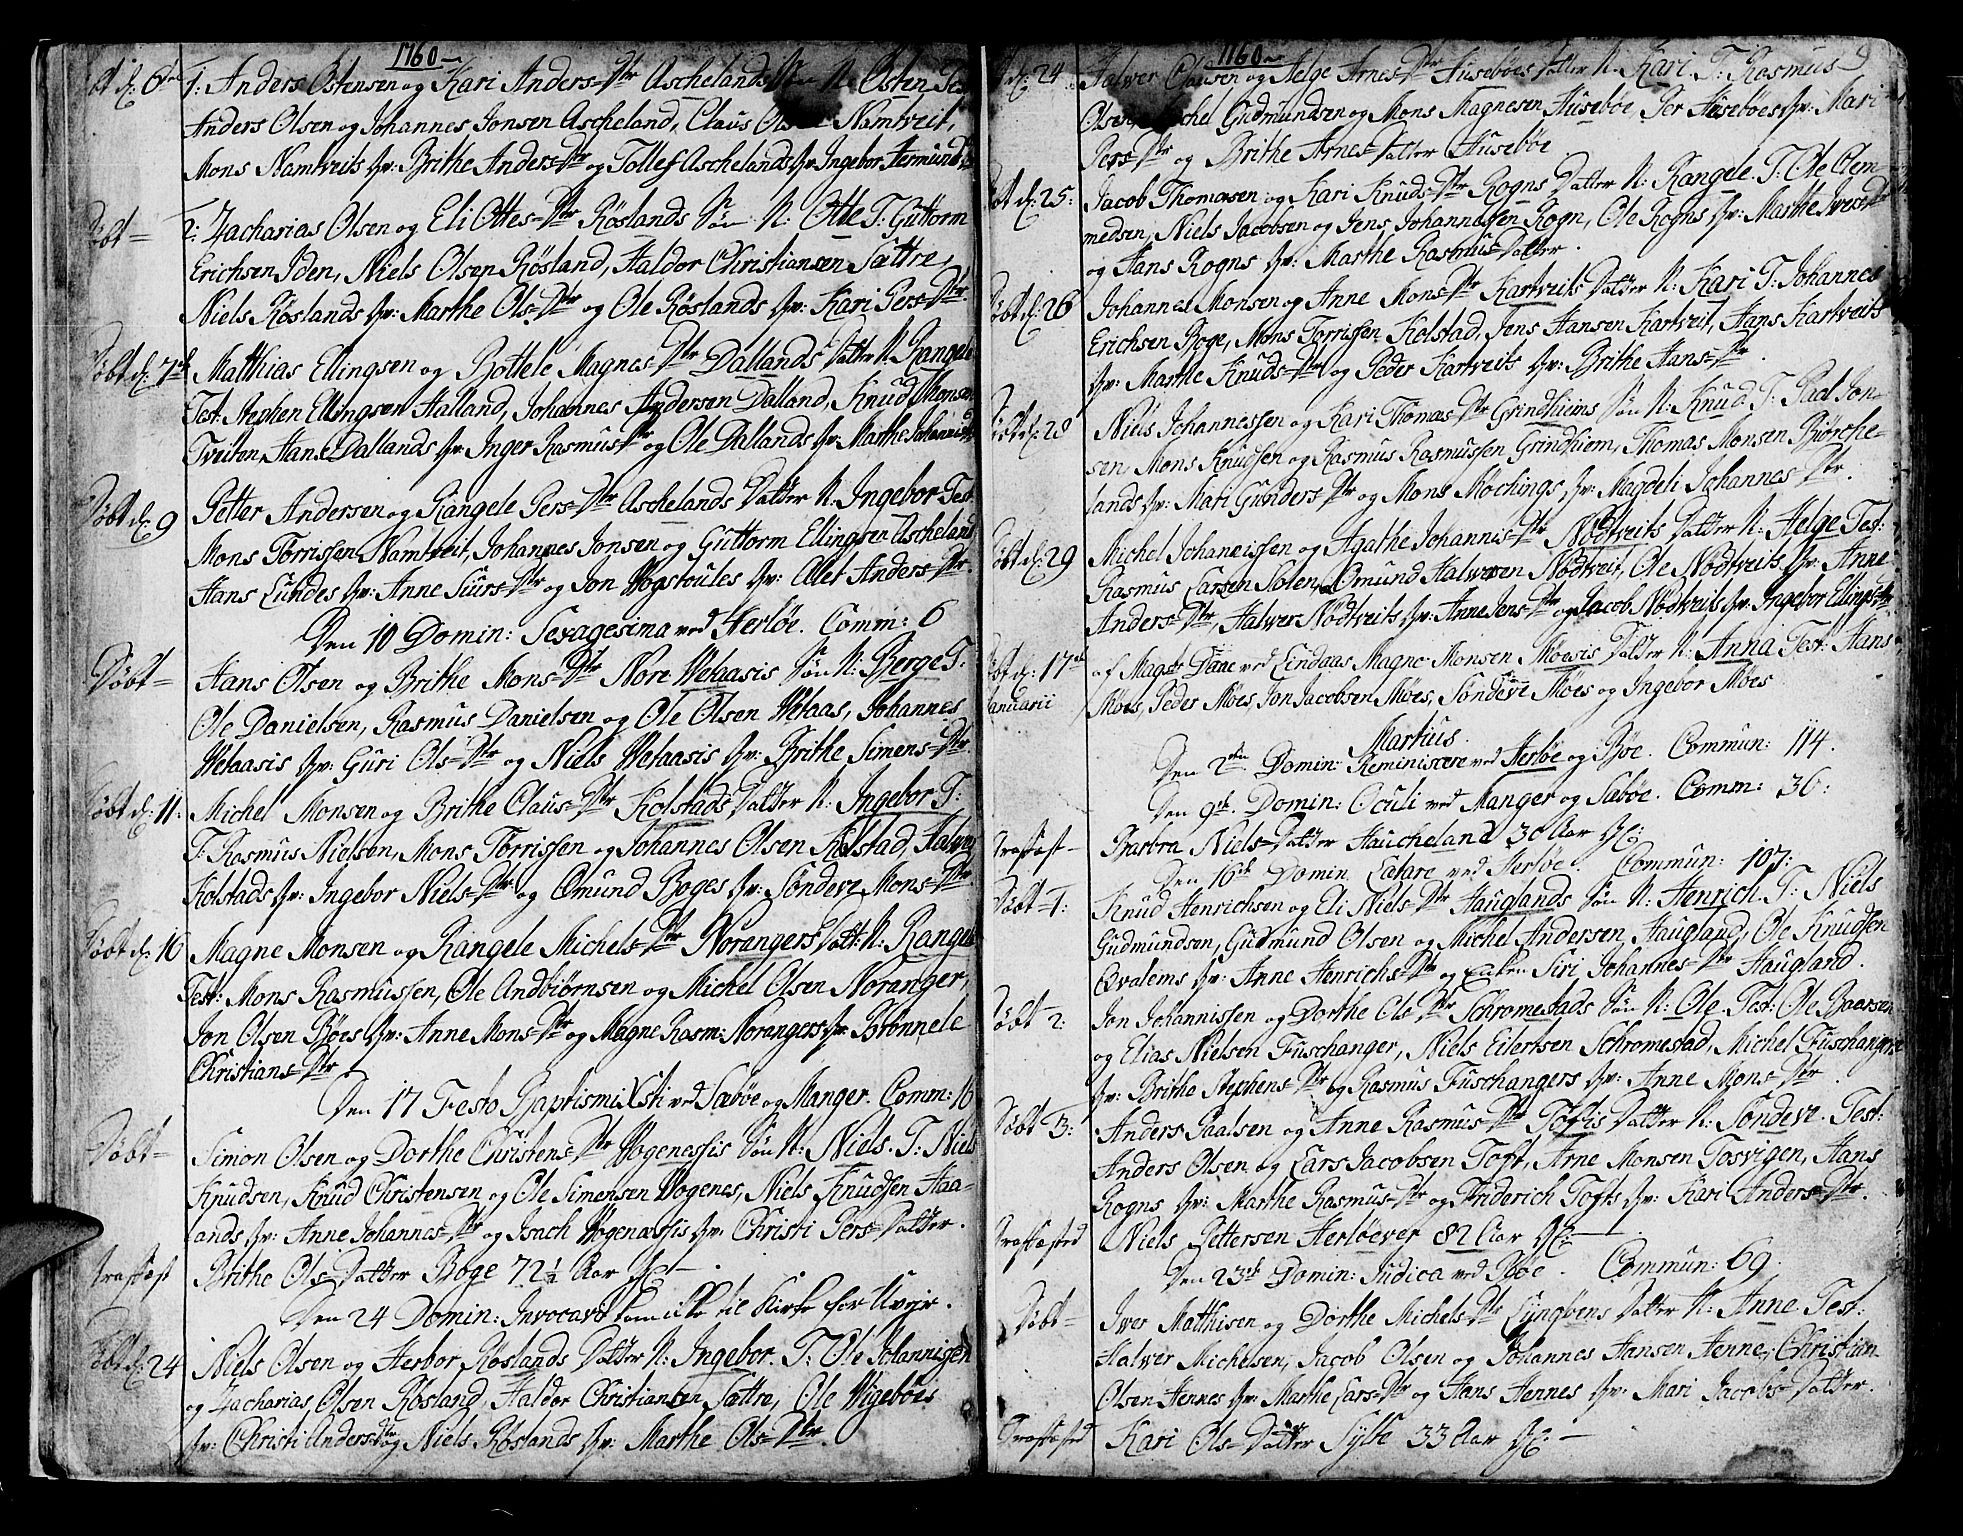 1760
Døbt d: 6te 1: Anders Ostensen og Kari Anders-Dtr Aschelands Søn N: Osten Test
Anders Olsen og Johannes Jonsen Ascheland, Claus Olsen Namtveit,
Mons Namtveits hv: Brithe Anders-Dtr og Tollef Aschelands hv: Ingebor Aermund
Døbt - 2: Zacharias Olsen og Eli Ottes-Dtr Røslands Søn N: Otte T: Guttorm
Erichsen Iden, Niels Olsen Røsland, Haldor Christiansen Sættre,
Niels Røslands hv: Marthe Ols-Dtr og Ole Røslands hv: Kari Pers-Dtr
Døbt d: 7de Matthias Ellingsen og Bottele Magnes-Dtr Dallands Datter N: Rangele
Test: Stephen Ellingsen Halland, Johannes Andersen Dalland, Knud Monsen
Tveiten, Hans Dallands hv: Inger Rasmus-Dtr og Ole Dallands hv: Marthe Johannis
Døbt d: 9 Petter Andersen og Rangele Pers-Dtr Aschelands Datter N: Ingebor Test
Mons Torrissen Namtveit, Johannes Jonsen og Guttorm Ellingsen Ascheland
Hans Lundes hv: Anne Siurs-Dtr og Jon Vogstoules hv: Olet Anders-Dtr
Den 10 Domin: Sexagesima ved Herløe. Comm: 6
Døbt - Hans Olsen og Brithe Mons-Dtr Nore Vetaasis Søn N: Berge T:
Ole Danielsen, Rasmus Danielsen og Ole Olsen Vetaas, Johannes
Vetaasis hv: Guri Ols-Dtr og Niels Vetaasis hv: Brithe Simens-Dtr
Døbt d: 11: Michel Monsen og Brithe Claus-Dtr Kolstads Datter N: Ingebor T:
T: Rasmus Nielsen, Mons Torrissen og Johannes Olsen Kolstad, Halver
Kolstads hv: Ingebor Niels-Dtr og Omund Boges hv: Søndeve Mons-Dtr
Døbt d: 16 Magne Monsen og Rangele Michels-Dtr Norangers Datt: N: Rangele
Test: Mons Rasmussen, Ole Andbiørnsen og Michel Olsen Noranger,
Jon Olsen Bøes hv: Anne Mons-Dtr og Magne Rasm: Norangers hv: Brønnele
Christians-Dtr
Den 17 Festo Baptismi Xsti ved Sæbøe og Manger. Comm: 16
Døbt - Simon Olsen og Dorthe Christens-Dtr Vogenessis Søn N: Niels. T: Niels
Knudsen, Knud Christensen og Ole Simensen Vogenes, Niels Knudsen Haa-
lands hv: Anne Johannes-Dtr og Isach Vogenæssis hv: Christi Pers-Datter.
Græsfæst Brithe Ols-Datter Boge 72 1/2 Aar
Den 24 Domin: Invocavit kom icke til Kirke for Uvejr.
Døbt d: 24 Niels Olsen og Herbor Røslands Datter N: Ingebor. T: Ole Johannisen
og Zacharias Olsen Røsland, Haldor Christiansen Sættre, Ole Vigebøes
hv: Christi Anders-Dtr og Niels Røslands hv: Marthe Ols-Dtr.
1760 9
d: 24 Halver Clausen og Helge Arnes-Dtr Husebøes Datter N: Kari. T: Rasmus
Olsen, Michel Gudmundsen og Mons Magnesen Husebøe, Per Husebøes hv: Mari
Pers-Dtr og Brithe Arnes-Datter Husebøe
Døbt d: 25: Jacob Thomasen og Kari Knuds-Dtr Rogns Datter N: Rangele. T: Ole Clem-
medsen, Niels Jacobsen og Jens Johannesen Rogn, Ole Rogns hv: Marthe Ivers-Dtr
og Hans Rogns hv: Marthe Rasmus-Datter.
Døbt d: 26 Johannes Monsen og Anne Mons-Dtr Kartveits Datter N: Kari T: Johannes
Erichsen Boge, Mons Torrissen Kolstad, Jens Hansen Kartveit, Hans Kartveits
hv: Marthe Knuds-Dtr og Peder Kartveits hv: Brithe Hans-Dtr.
Døbt d: 28 Niels Johannessen og Kari Thomæs-Dtr Grindhiems Søn N: Knud T: Paal Jon-
sen, Mons Knudsen og Rasmus Rasmussen Grindhiem, Thomas Monsen Biørche-
lands hv: Mari Gunders-Dtr og Mons Mochings hv: Magdeli Johannes-Dtr.
Døbt d: 29 Michel Johannissen og Agathe Johannis-Dtr Nødtveits Datter N: Helge Test:
Rasmus Larsen Solen, Omund Halversen Nødtveit, Ole Nødtveits hv: Anne
Anders-Dtr, Halver Nødtveits hv: Anne Jens-Dtr og Jacob Nødtveits hv: Ingebor Ellings-Dtr
Døbt d: 17de Januarii af Magstr Daae ved Eindaas Magne Monsen Moesis Datter N: Anna Test: Hans
Møes, Peder Møes, Jon Jacobsen Møes, Søndeve Møes og Ingebor Møes
Martius.
Den 2den Domin: Reminiscere ved Herløe og Bøe. Commun: 114.
Den 9de. Domin: Oculi ved Manger og Sæbøe. Comm: 36:
Græsfæst - Barbra Niels-Datter Haucheland 30 Aar
Den 16de Domin Lætare ved Herløe. Commun: 107:
Døbt - 1: Knud Henrichsen og Eli Niels-Dtr Hauglands Søn N: Henrich. T: Niels
Gudmundsen, Gudmund Olsen og Michel Andersen Haugland, Ole Knudsen
Qvalems hv: Anne Henrichs-Dtr og Enken Siri Johannes-Dtr Haugland.
Døbt 2: Jon Johannissen og Dorthe Ols-Dtr Schromestads Søn N: Ole. Test: Ole Baarsen
og Elias Nielsen Fuschanger, Niels Eilertsen Schromestad, Michel Fuschangers
hv: Brithe Stephens-Dtr og Rasmus Fuschangers hv: Anne Mons-Dtr.
Døbt 3: Anders Paalsen og Anne Rasmus-Dtr Toftis Datter N: Søndeve. Test:
Anders Olsen og Lars Jacobsen Toft, Arne Monsen Tosvigen, Hans
Rogns hv: Marthe Rasmus-Dtr og Friderich Tofts hv: Kari Anders-Dtr.
Græsfæsted Niels Pettersen Herløever 82 Aar
Den 23de Domin: Judica ved Bøe. Commun: 69.
Døbt - Iver Matthisen og Dorthe Michels-Dtr Lyngøens Datter N: Anne Test:
Halver Michelsen, Jacob Olsen og Johannes Hansen Henne, Christian
Olsen Hennes hv: Marthe Lars-Dtr og Hans Hennes hv: Mari Jacobs-Datter.
Græsfæsted Kari Ols-Datter Sylte 33 Aar